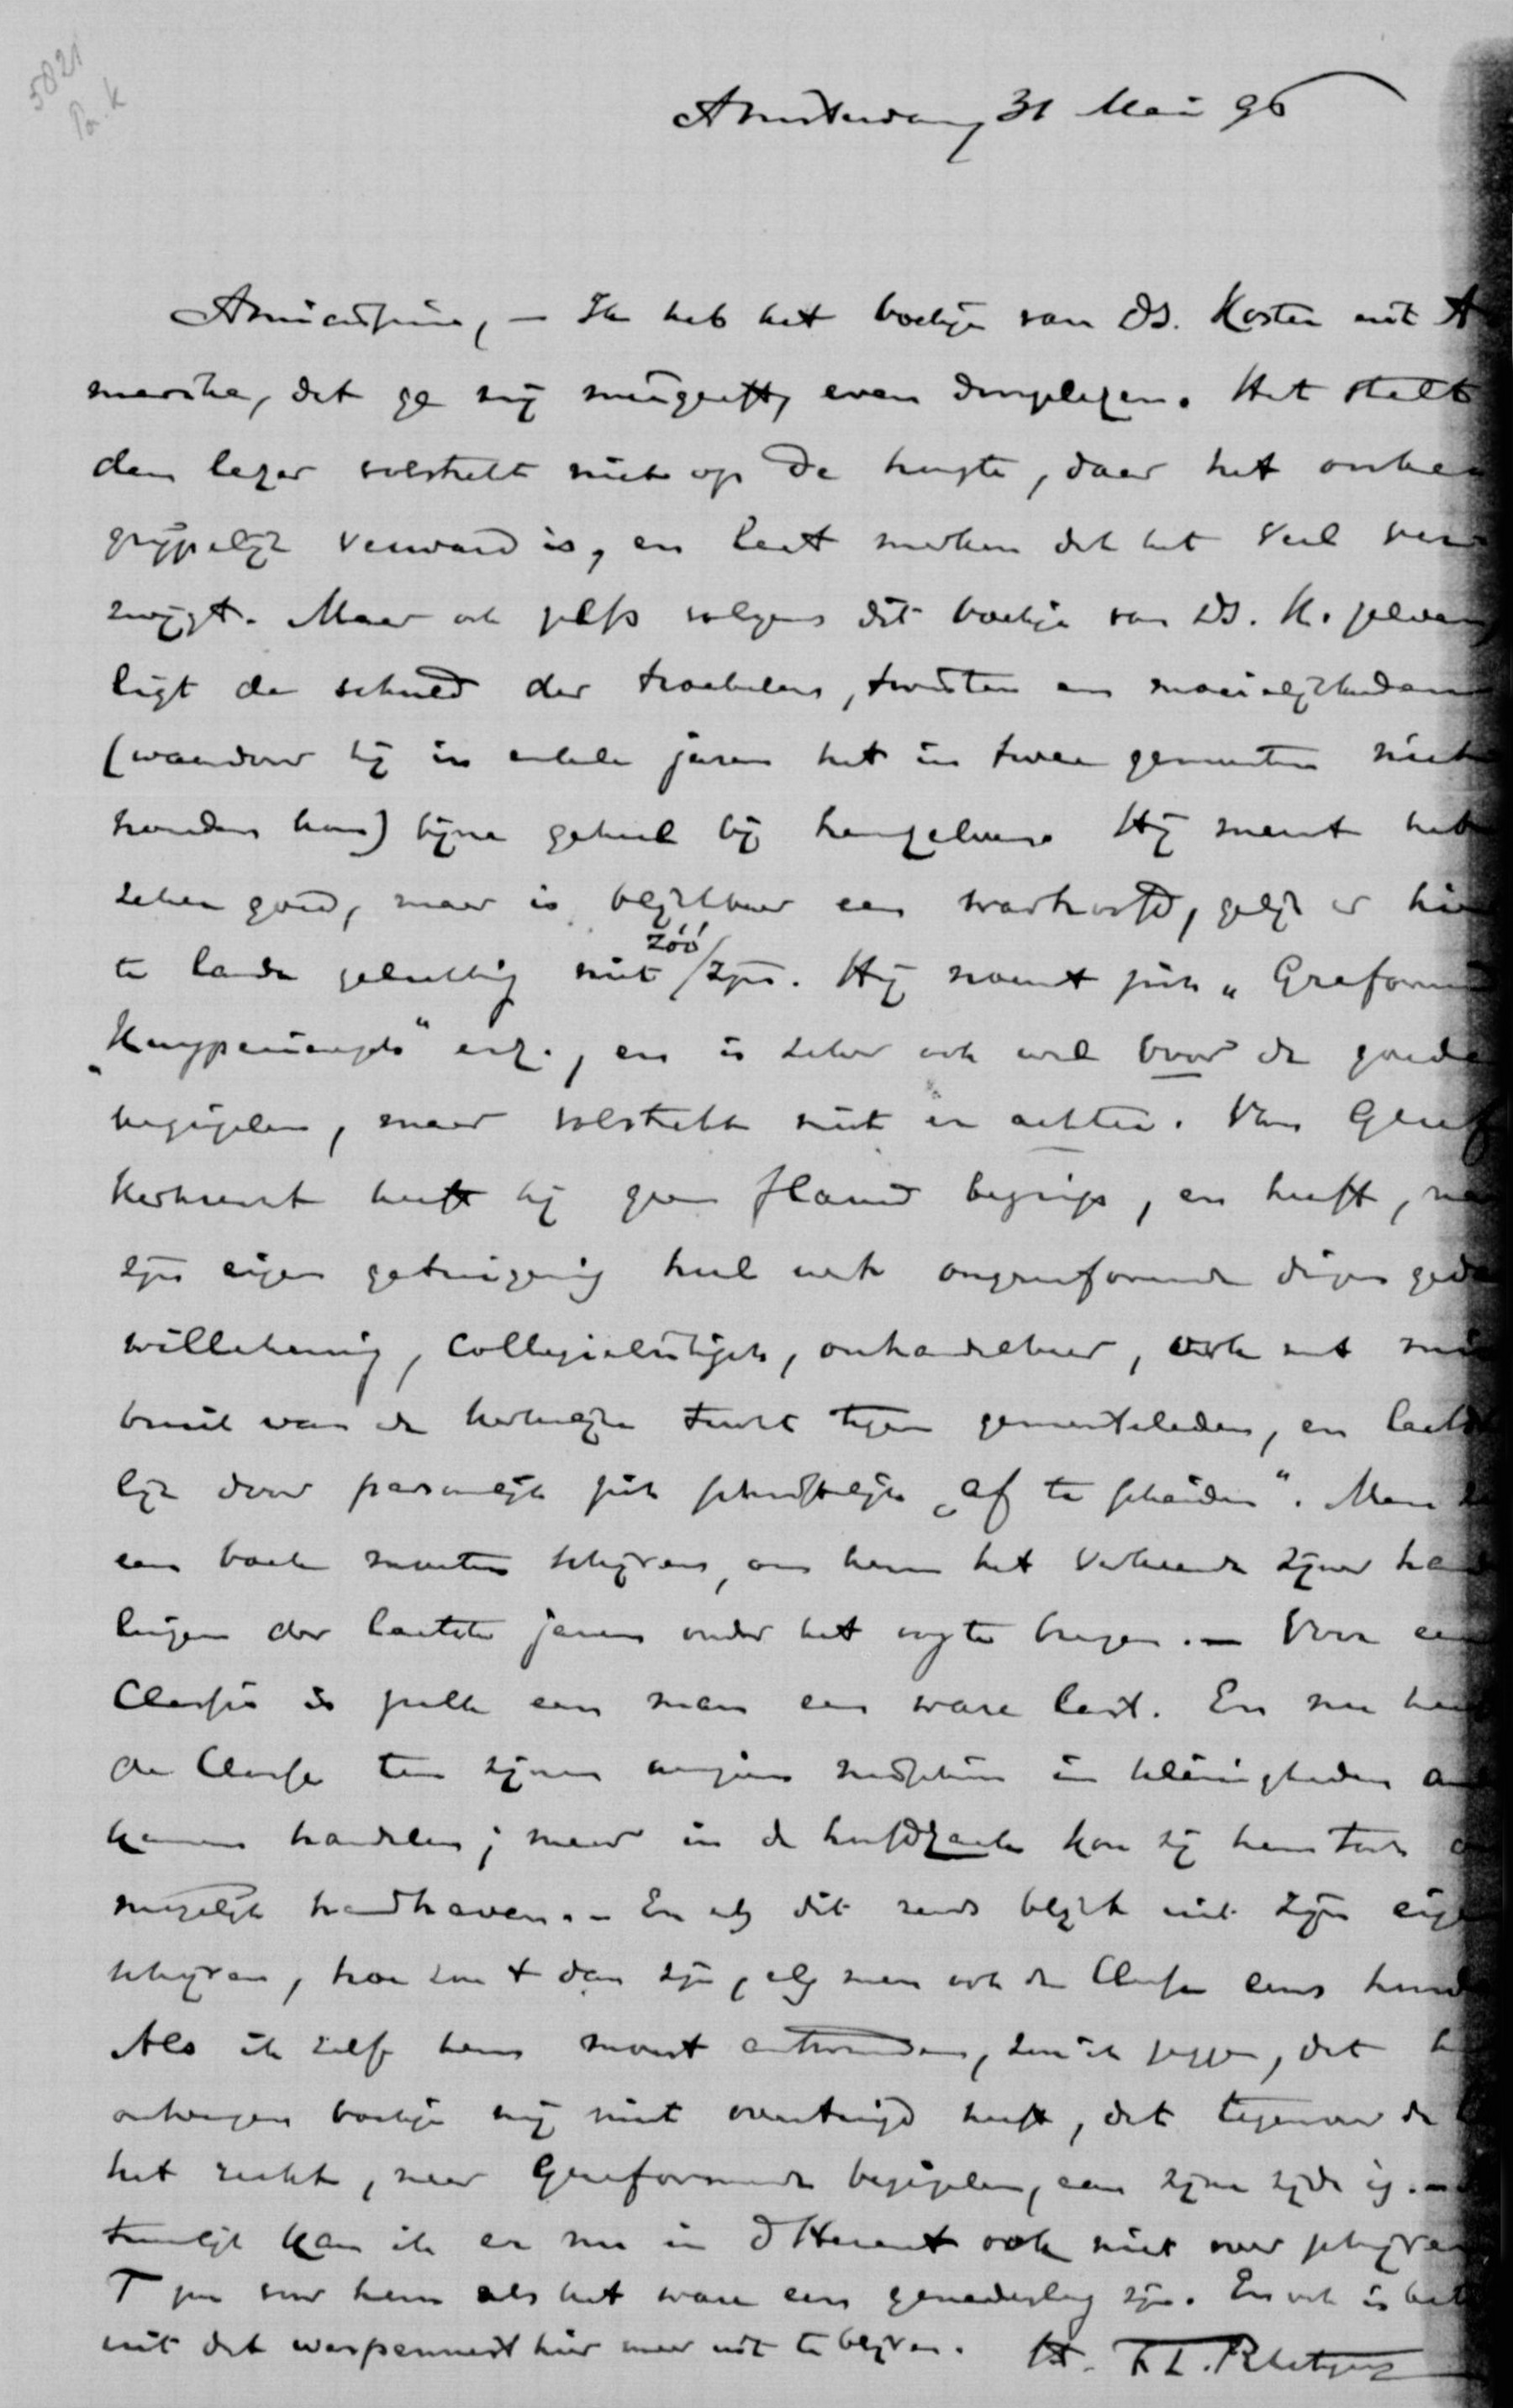 5821
Pa. K
Amsterdam 31 Mei 96
Amicissime, – Ik heb het boekje van Ds. Koster uit A
merika, dat ge mij meegeeft, even doorgelezen. Het stelt
den lezer volstrekt niet op de hoogte, daar het onbe
grijpelijk verward is, en laat merken dat het veel ver
zwijgt. Maar ook zelfs volgens dit boekje van Ds. K. zelven,
ligt de schuld der troebelen, twisten en moeielijkheden
(waardoor hij in enkele jaren het in twee gemeenten niet
houden kon) bijna geheel bij hemzelven. Hij meent het
zeker goed, maar is blijkbaar een warhoofd, gelijk er hier
te lande gelukkig niet zóó zijn. Hij noemt zich „Gereform
„Kuyperiaansch" enz., en is zeker ook wel voor de goede
beginselen, maar volstrekt niet er achter. Van Geref
Kerkrecht heeft hij geen flauw begrip, en heeft, na
zijn eigen getuigenis heel wat ongereformeerde dingen geda
willekeurig, collegialistisch, onhandelbaar, ook met mis
bruik van de kerkelijke tucht tegen gemeenteleden, en laatste
lijk door persoonlijk zich schriftelijk „af te scheiden". Men z
een boek moeten schrijven, om hem het verkeerde zijner hand
lingen der laatste jaren onder het oog te brengen. – Voor een
Classis is zulk een man een ware last. En nu
de Classe ten zijnen aanzien misschien in kleinigheden an
kunnen handelen; maar in de hoofdzaak kon zij hem toch on
mogelijk handhaven. – En als dit reeds blijkt uit zijn eigen
schrijven, hoe zou 't dan zijn, als men ook de Classe eens hoord
Als ik zelf hem moest antwoorden, zou ik zeggen, dat h
ontvangen boekje mij niet overtuigd heeft, dat tegenover de
het recht, naar Gereformeerde beginselen, aan zijne zijde is. –
kan ik er nu in d' Heraut ook niet over schrijven
T zou voor hem als het ware een genadeslag zijn. En ook is het
uit dat wespennest hier maar uit te blijven. tt. F.L. Rutgers